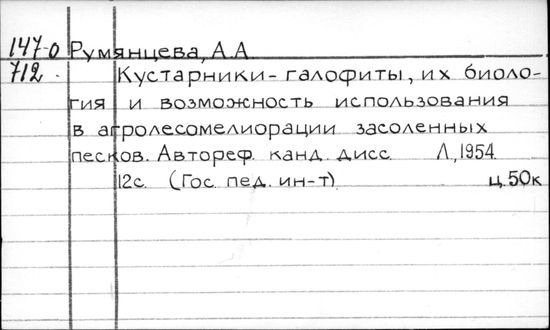 147-0 Румянцева, А.А.
712. Кустарники-галофиты, их биоло-
гия и возможность использования
в агролесомелиорации засоленных
песков. Автореф. канд. дисс. Л., 1954.
12с. (Гос. пед. ин-т) ц. 50к